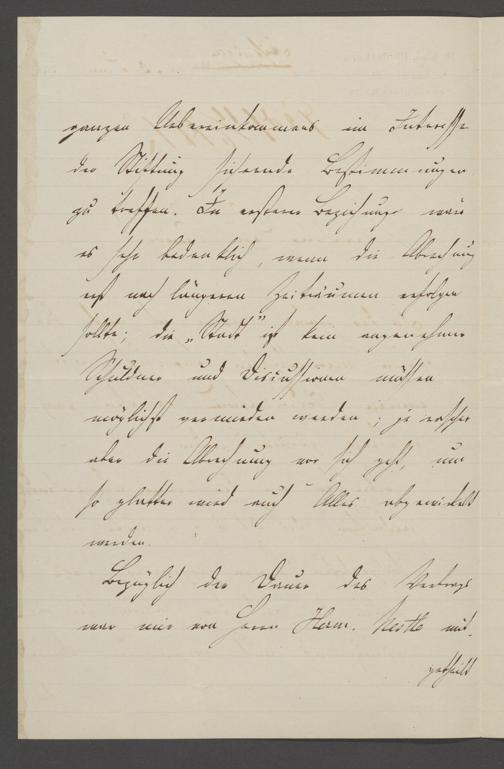 ganzen Uebereinkommens im Interesse
der Stiftung sichernde Bestimmungen
zu treffen. In ersterer Beziehung wäre
es sehr bedenklich, wenn die Abrechnung
erst nach längeren Zeiträumen erfolgen
sollte; die „Stadt" ist kein angenehmer
Schuldner und Discussionen müssen
möglichst vermieden werden; je rascher
aber die Abrechnung vor sich geht, um
so glatter wird auch Alles abgewickelt
werden.
Bezüglich der Dauer des Vertrags
war mir von Herrn Herm. Nestle mit-
getheilt